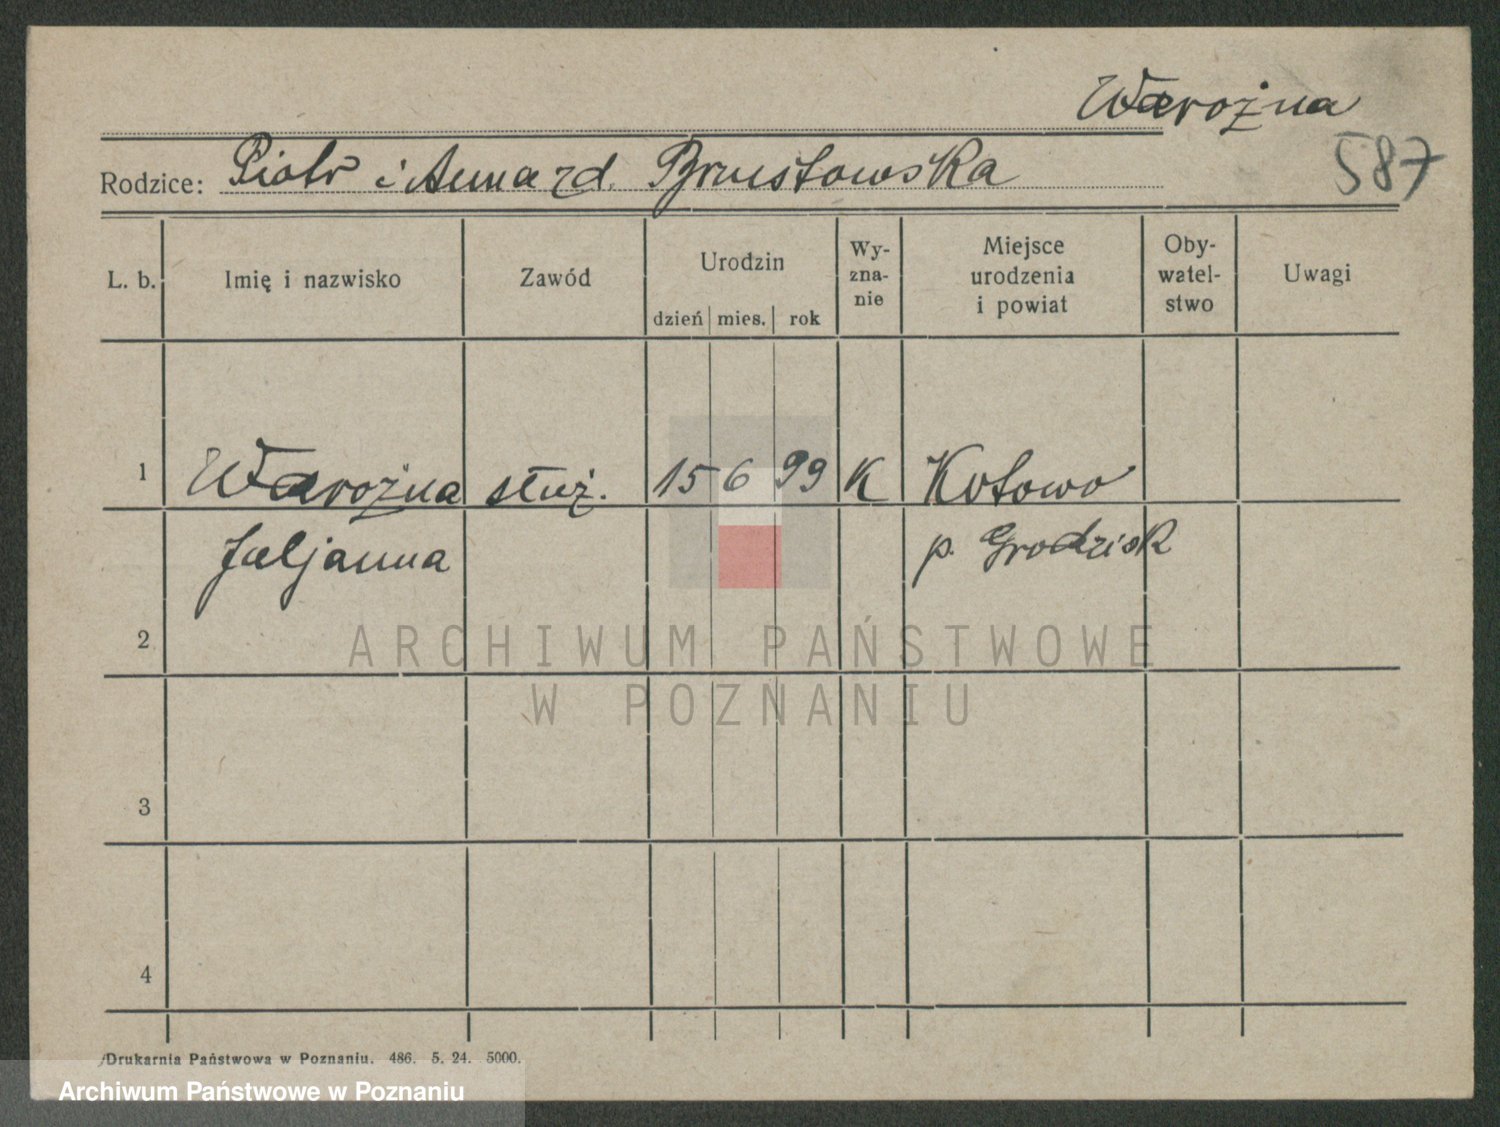 Warożna
Rodzice: Piotr i Anna zd. Brustowska
587
L. b.
Imię i nazwisko
Zawód
Urodzin
dzień mies. rok
Wy-
zna-
nie
Miejsce
urodzenia
i powiat
Oby-
watel-
stwo
Uwagi
1 Warożna służ. 15 6 99 K Kotowo
Juljanna p. Grodzisk
2
ARCHIWUM PAŃSTWOWE
W POZNANIU
3
4
Drukarnia Państwowa w Poznaniu. 486. 5. 24. 5000.
Archiwum Państwowe w Poznaniu